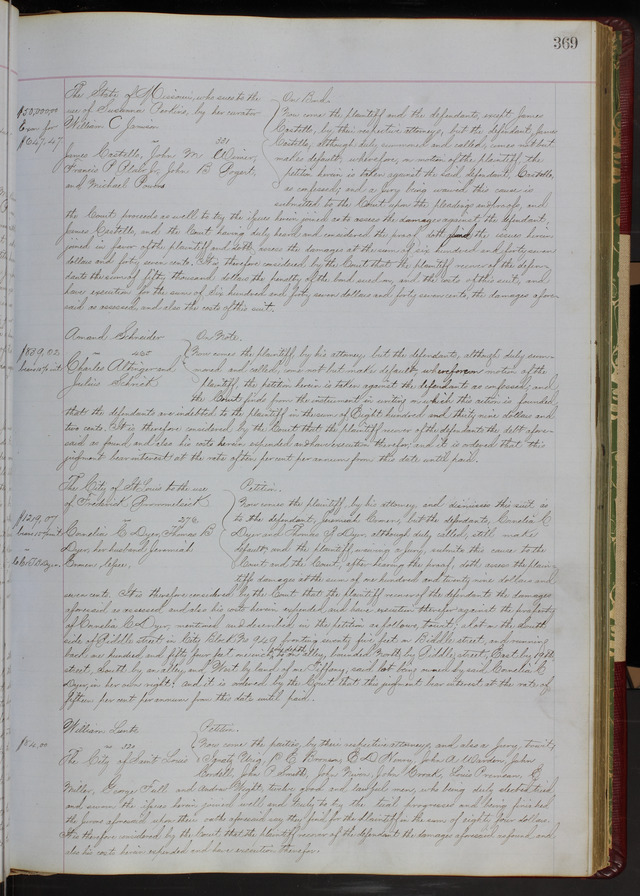 369
The State of Missouri, who sues to the
use of Susanna Perkins, by her curator
William C Jamison
vs 321
James Costello, John M. Weiner,
Francis P. Blair Jr, John B.
and Michael Powers
$50,000.00
Exon for
$647.47
On Bond.
Now come the plaintiff and the defendants, except James
Costello, by their respective attorneys, but the defendant, James
Costello, although duly summoned and called, comes not but
makes default, wherefore, on motion of the plaintiff, the
petition herein is taken against the said defendant, Costello,
as confessed; and a jury being waived, this cause is
submitted to the Court upon the pleadings and proofs, and
the Court proceeds as well to try the issues herein joined as to assess the damages against the defendant,
James Costello, and the Court having duly heard and considered the proof, doth find the issues herein
joined in favor of the plaintiff and doth assess the damages at the sum of six hundred and forty seven
dollars and forty seven cents. It is therefore considered by the Court that the plaintiff recover of the defen-
dants the sum of fifty thousand dollars the penalty of the bond sued on, and the costs of this suit, and
have execution for the sum of Six hundred and forty seven dollars and forty seven cents, the damages afore-
said as assessed, and also the costs of this suit.
Amand Schneider
vs 425
Charles Altinger and
Julius Schnick
$839.02
On Note.
Now comes the plaintiff by his attorney but the defendants, although duly sum-
moned and called, come not but make default; wherefore on motion of the
plaintiff the petition herein is taken against the defendants as confessed; and
the Court finds from the instrument in writing on which this action is founded,
that the defendants are indebted to the plaintiff in the sum of Eight hundred and thirty nine dollars and
two cents. It is therefore considered by the Court that the plaintiff recover of the defendants the debt afore-
said so found, and also his costs herein expended and have execution therefor; and it is ordered that this
judgment bear interest at the rate of ten per cent per annum from this date until paid.
The City of St Louis to the use
of Frederick
vs 372
Cornelia C Dyer, Thomas B
Dyer, her husband, Jeremiah
$129.07
Petition.
Now comes the plaintiff by his attorney, and dismisses this suit as
to the defendant, Jeremiah, but the defendants, Cornelia C
Dyer and Thomas B Dyer, although duly called, still make
default; and the plaintiff, waiving a jury, submits this cause to the
Court and the Court, after hearing the proof, doth assess the plain-
tiffs damages at the sum of one hundred and twenty nine dollars and
seven cents. It is therefore considered by the Court that the plaintiff recover of the defendants the damages
aforesaid as assessed and also his costs herein expended and have execution therefor against the property
of Cornelia C Dyer, mentioned and described in the petition as follows, to wit: a lot on the South
side of Biddle street in City Block No 949 fronting twenty five feet on Biddle street, and running
back one hundred and fifty four feet to an alley, bounded North by Biddle street, East by 19th
street, South by an alley and West by land of Tiffany, said lot being owned by said Cornelia C
Dyer, in her own right; and it is ordered by the Court that the judgment bear interest at the rate of
fifteen per cent per annum from this date until paid.
William Lunte
vs 520
The City of Saint Louis
$84.00
Petition.
Now come the parties, by their respective attorneys, and also a Jury, to wit,
John
John P. Smith, John, John, Louis
Miller, George Fall and, twelve good and lawful men, who being duly elected, tried
and sworn the issues herein joined well and truly to try, the trial progressed and being finished
the jurors aforesaid upon their oaths aforesaid say they find for the plaintiff in the sum of eighty four dollars.
It is therefore considered by the Court that the plaintiff recover of the defendant the damages aforesaid as found, and
also his costs herein expended and have execution therefor.